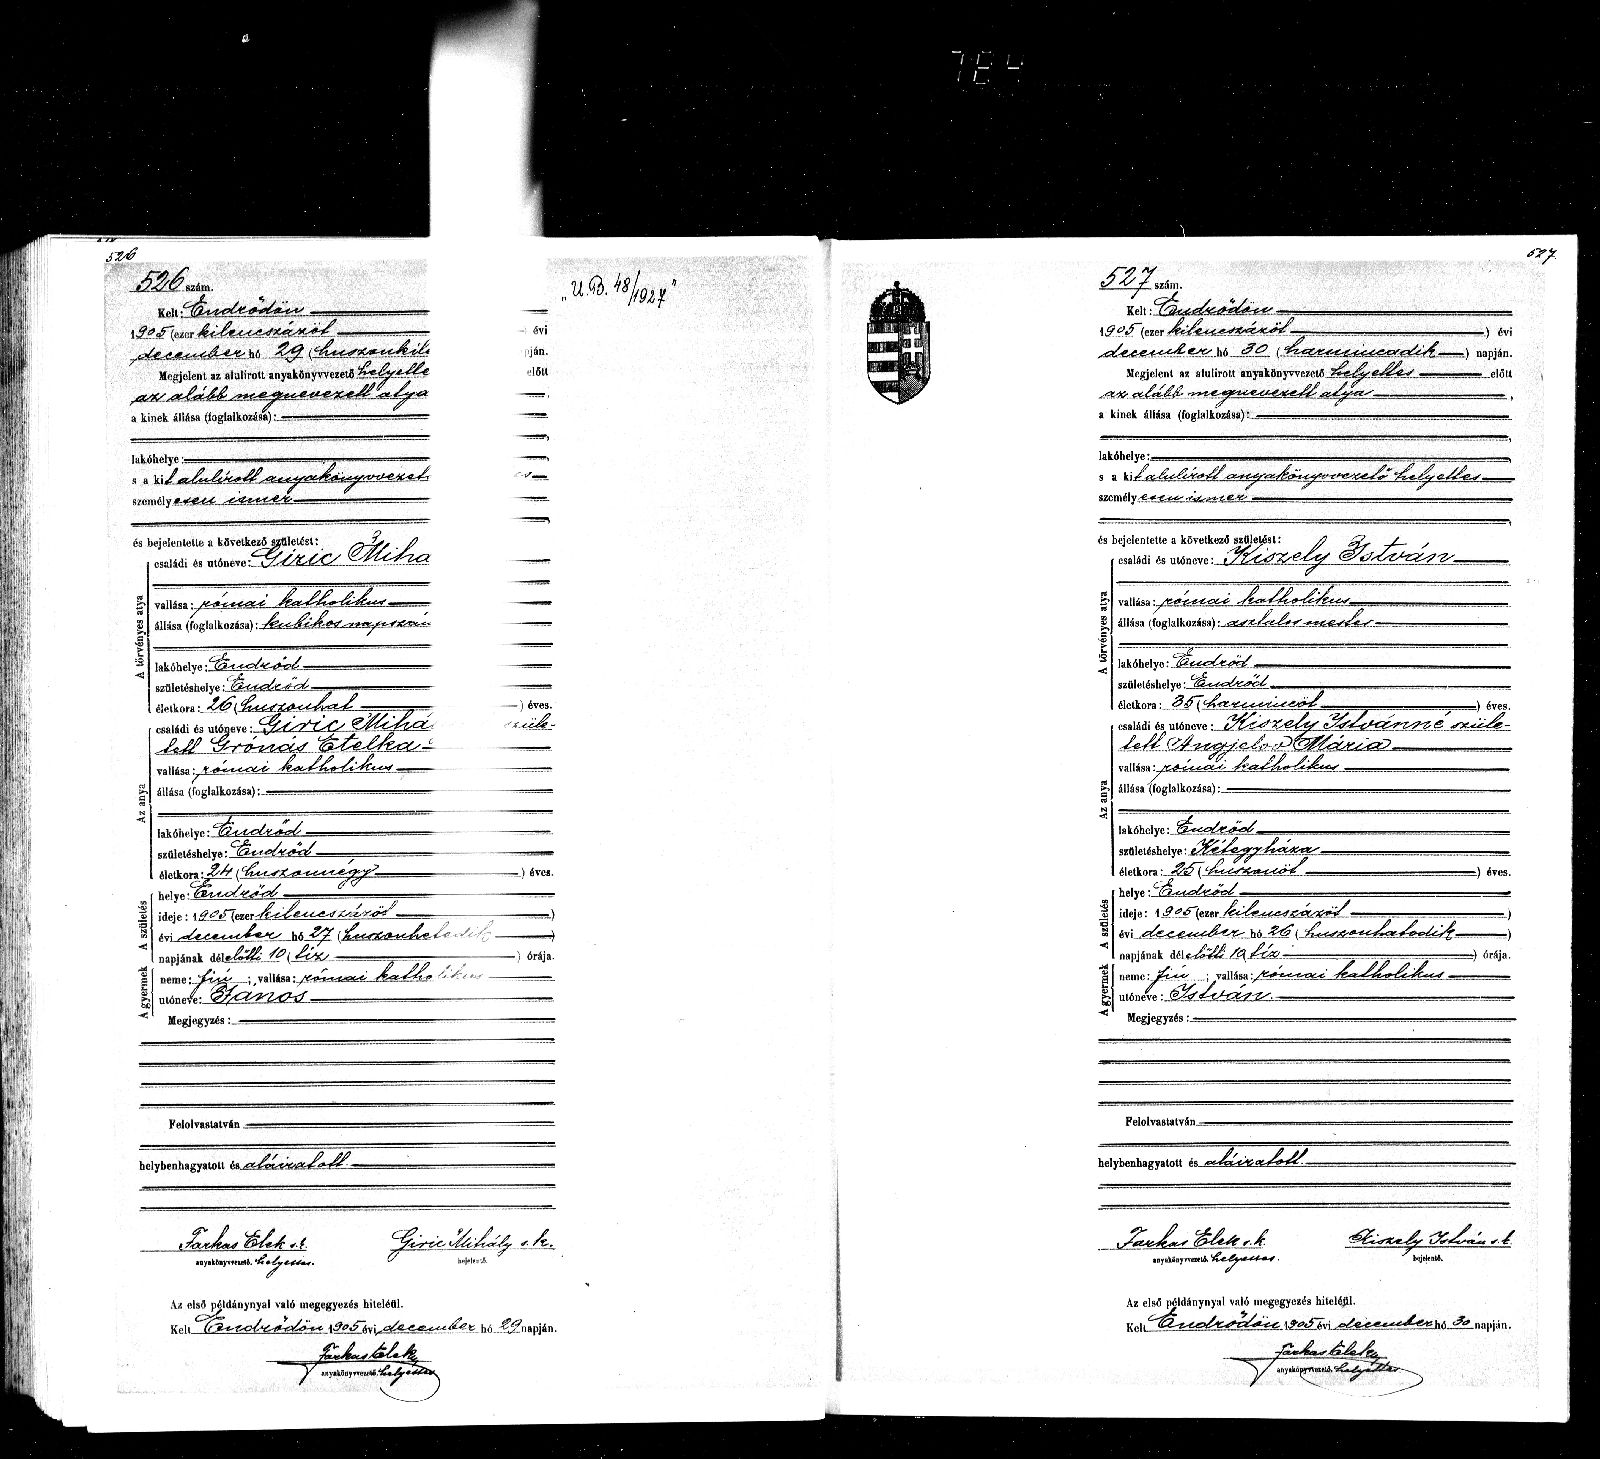 784
526
526 szám.
„U.B. 48/1927"
Kelt: Endrődön
1905 (ezer kilencszázöt) évi
december hó 29 (huszonkil pján.
Megjelent az alulirott anyakönyvvezető helyette előtt
az alább megnevezett atya
a kinek állása (foglalkozása):
lakóhelye:
s a kit alulírott anyakönyvvezet es
személyesen ismer
és bejelentette a következő születést:
A törvényes atya
családi és utóneve: Giric Mihá
vallása: római katholikus
állása (foglalkozása): kubikos napszám
lakóhelye: Endrőd
születéshelye: Endrőd
életkora: 26 (huszonhat) éves.
Az anya
családi és utóneve: Giric Mihá szüle-
tett Grónás Etelka
vallása: római katholikus
állása (foglalkozása):
lakóhelye: Endrőd
születéshelye: Endrőd
életkora: 24 (huszonnégy) éves.
A születés
helye: Endrőd
ideje: 1905 (ezer kilencszázöt)
évi december hó 27 (huszonhetedik)
napjának délelőtti 10 (tíz) órája.
A gyermek
neme: fiú; vallása: római katholikus
utóneve: János
Megjegyzés:
Felolvastatván
helybenhagyatott és aláiratott
Farkas Elek s.k. Giric Mihály s.k.
anyakönyvvezető helyettes. bejelentő.
Az első példánynyal való megegyezés hiteléül.
Kelt Endrődön 1905 évi december hó 29 napján.
Farkas Elek
anyakönyvvezető helyettes
527
527 szám.
Kelt: Endrődön
1905 (ezer kilencszázöt) évi
december hó 30 (harmincadik) napján.
Megjelent az alulirott anyakönyvvezető helyettes előtt
az alább megnevezett atya,
a kinek állása (foglalkozása):
lakóhelye:
s a kit alulírott anyakönyvvezető helyettes
személyesen ismer
és bejelentette a következő születést:
A törvényes atya
családi és utóneve: Kiszely István
vallása: római katholikus
állása (foglalkozása): asztalos mester
lakóhelye: Endrőd
születéshelye: Endrőd
életkora: 35 (harmincöt) éves.
Az anya
családi és utóneve: Kiszely Istvánné szüle-
tett Angjelov Mária
vallása: római katholikus
állása (foglalkozása):
lakóhelye: Endrőd
születéshelye: Kétegyháza
életkora: 25 (huszonöt) éves.
A születés
helye: Endrőd
ideje: 1905 (ezer kilencszázöt)
évi december hó 26 (huszonhatodik)
napjának délelőtti 10 (tíz) órája.
A gyermek
neme: fiú; vallása: római katholikus
utóneve: István.
Megjegyzés:
Felolvastatván
helybenhagyatott és aláiratott.
Farkas Elek s.k. Kiszely István s.k.
anyakönyvvezető helyettes. bejelentő.
Az első példánynyal való megegyezés hiteléül.
Kelt Endrődön 1905 évi december hó 30 napján.
Farkas Elek
anyakönyvvezető helyettes